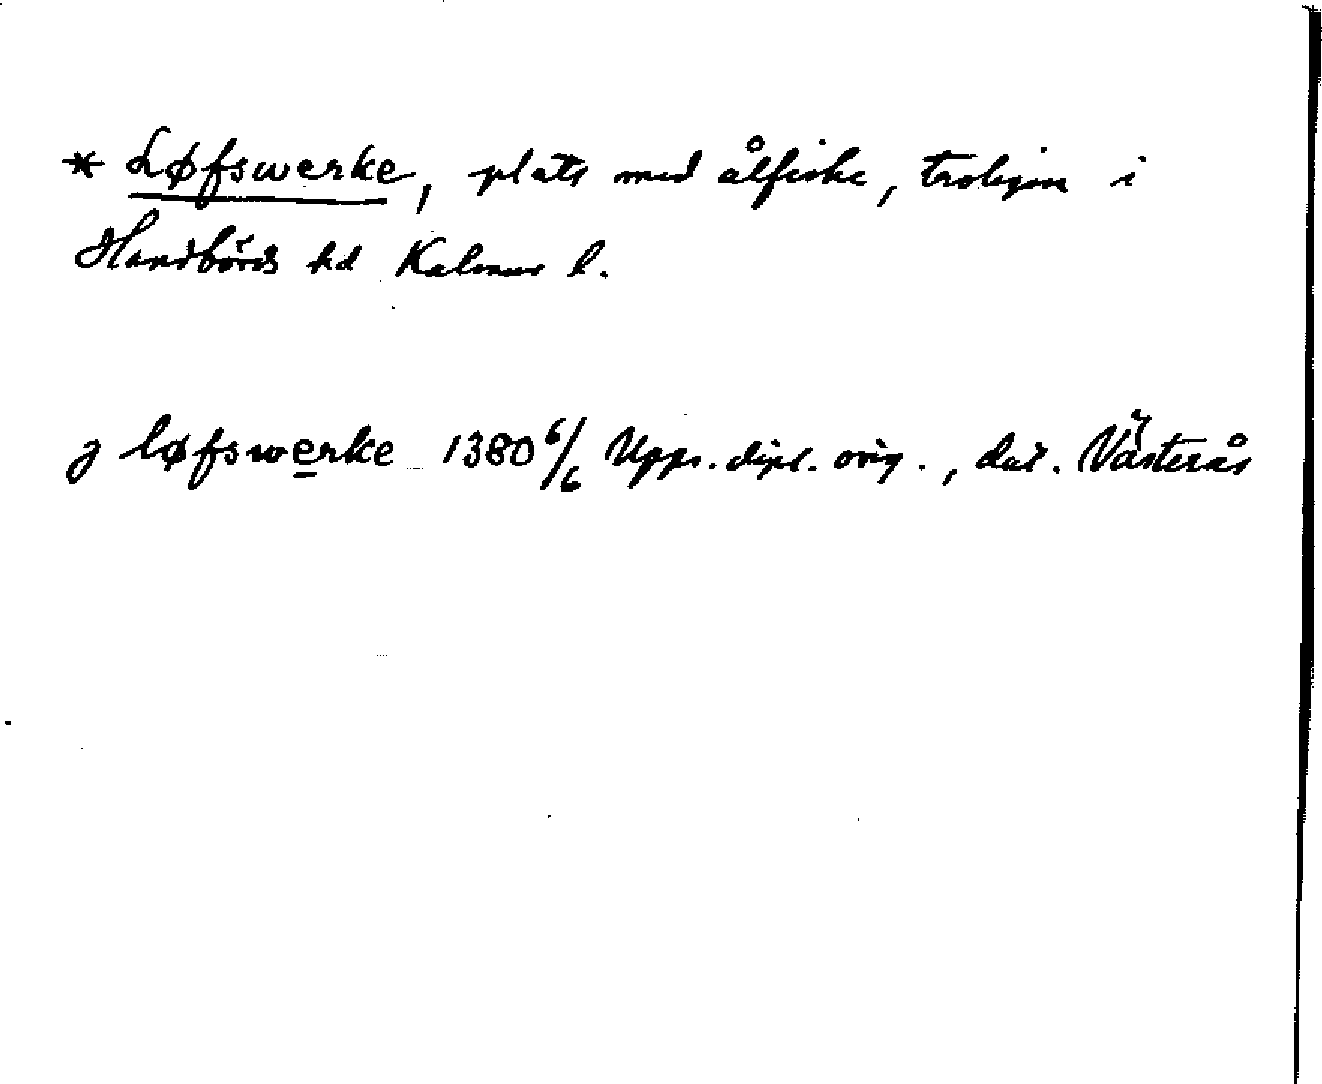 * Løfswerke, plats med ålfiske, troligen i
Handbörds hd Kalmar l.
j løfswerke 1380 6/6 Upps. dipl. orig., dat. Västerås